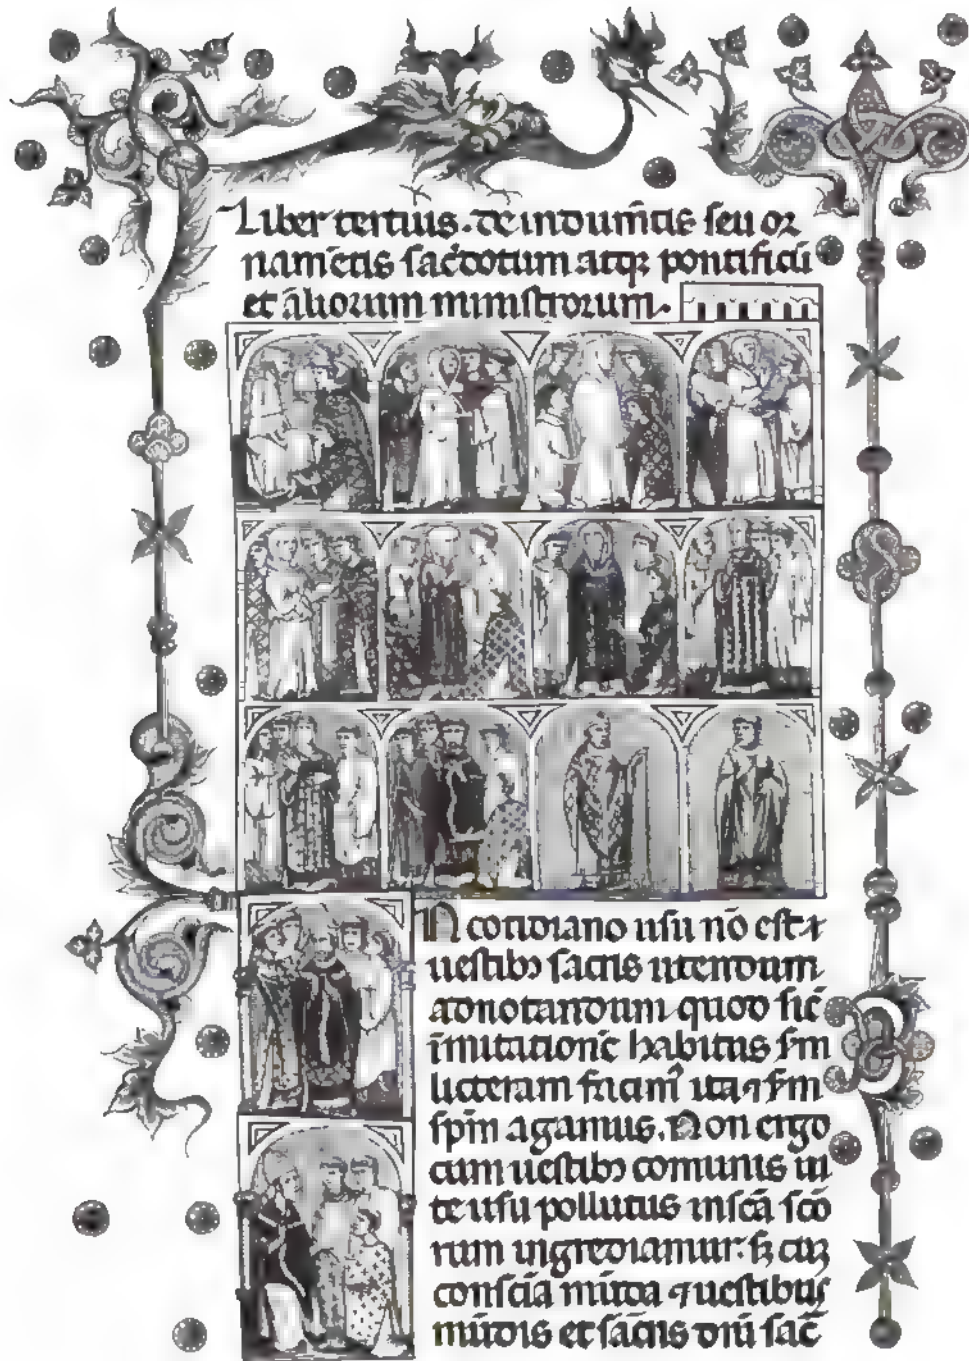 Liber tertius. de indum̄tis seu or
nam̄etis sac̓dotum atqꝫ pontificū
et āliorum ministrorum.
N cotidiano usu nō est
uestibꝰ sacris utendum
adnotandum quod sic̄
īmutation̄e habitus s̄m
litteram facim᷒ ita ⁊ s̄m
sp̄m agamus. Non ergo
cum uestibꝰ comunis ui
te usu pollutus in sc̄ā sc̄o
rum ingrediamur. sꝫ cuꝫ
consc̄ia mūda ⁊ uestibus
mūdis et sac̄ris dn̄i sac̄